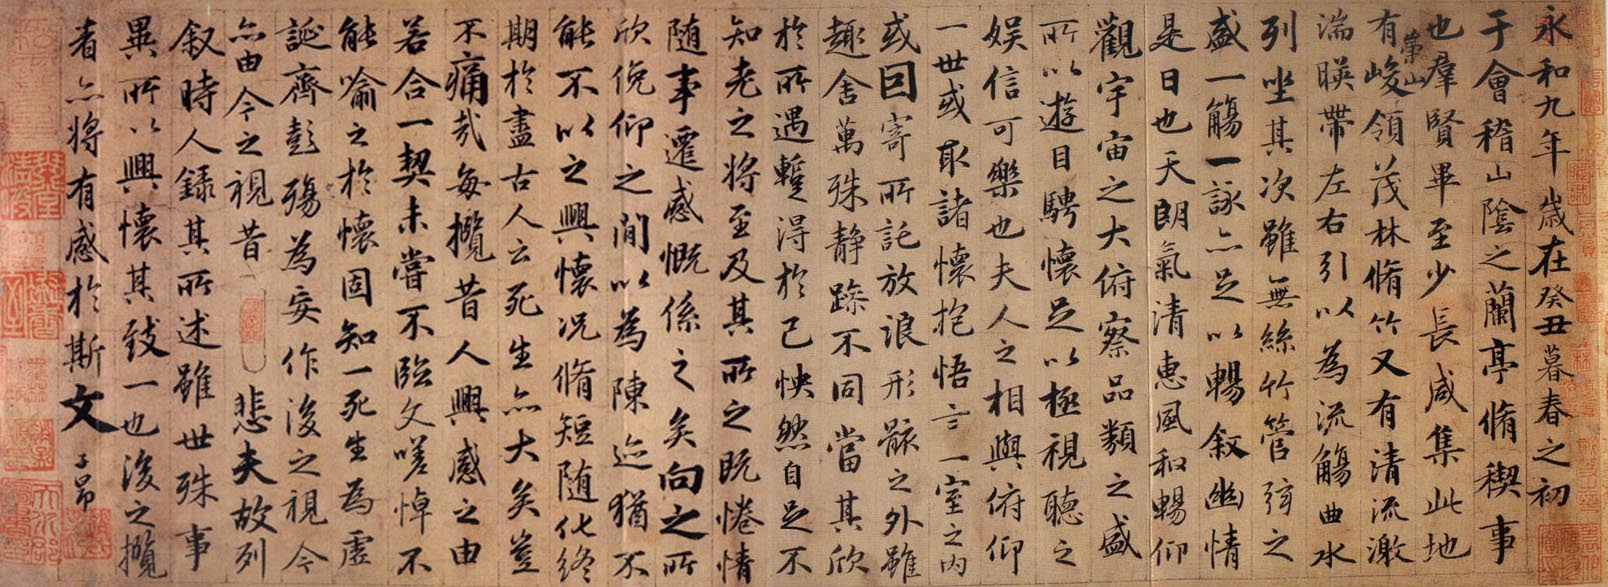 永和九年歲在癸丑暮春之初
于會稽山陰之蘭亭脩禊事
也羣賢畢至少長咸集此地
有崇山峻領茂林脩竹又有清流激
湍暎帶左右引以為流觴曲水
列坐其次雖無絲竹管弦之
盛一觴一詠亦足以暢叙幽情
是日也天朗氣清惠風和暢仰
觀宇宙之大俯察品類之盛
所以遊目騁懷足以極視聽之
娱信可樂也夫人之相與俯仰
一世或取諸懷抱悟言一室之内
或因寄所託放浪形骸之外雖
趣舍萬殊静躁不同當其欣
於所遇蹔得於己怏然自足不
知老之將至及其所之既惓情
随事遷感慨係之矣向之所
欣俛仰之間以為陳迹猶不
能不以之興懷况脩短随化終
期於盡古人云死生亦大矣豈
不痛哉每攬昔人興感之由
若合一契未嘗不臨文嗟悼不
能喻之於懷固知一死生為虚
誕齊彭殤為妄作後之視今
亦由今之視昔悲夫故列
叙時人録其所述雖世殊事
異所以興懷其致一也後之攬
者亦將有感於斯文 子昂